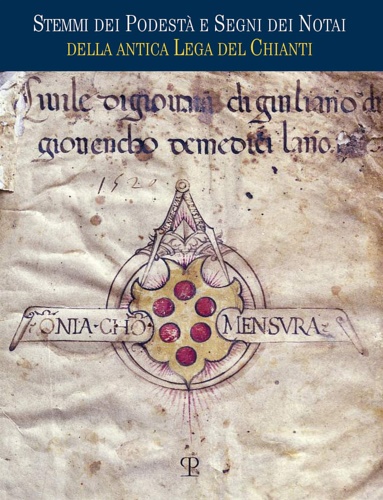 STEMMI DEI PODESTÀ E SEGNI DEI NOTAI
DELLA ANTICA LEGA DEL CHIANTI
Civile di giovanni di giuliano di
giovencho de medici lanno
1520
ONIA · CHO MENSVRA